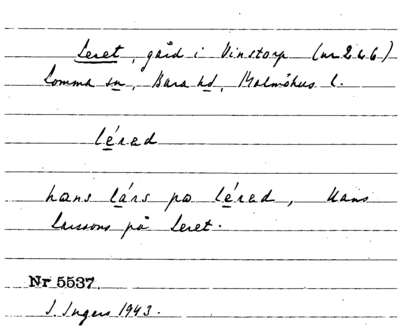 Leret, gård i Vinstorp (nr 2 & 6)
Lomma sn, Bara hd, Malmöhus l.
léræd
hans lárs pɑ léræd, Hans
Larssons på Leret.
Nr 5537.
I. Ingers 1943.